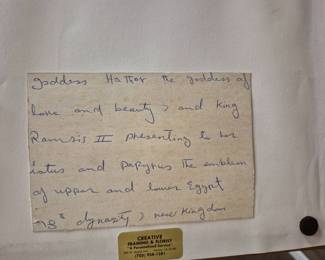 goddess Hathor the goddess of
love and beauty, and King
Ramsis II presenting to her
lotus and papyrus the emblem
of upper and lower Egypt
dynasty, new kingdom
CREATIVE
FRAMING & FLORIST
"A Personalized Service"